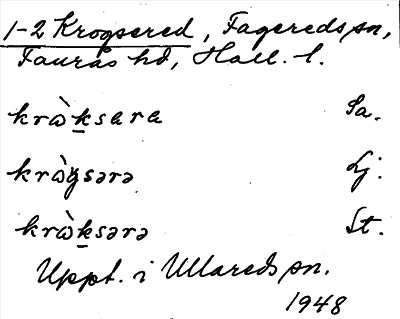 1-2 Krogsered, Fagereds sn,
Faurås hd, Hall. l.
krɷ̀ksara Sa.
krɷ̀gsərə Lj.
krɷ̀ksərə St.
Uppt. i Ullareds sn.
1948